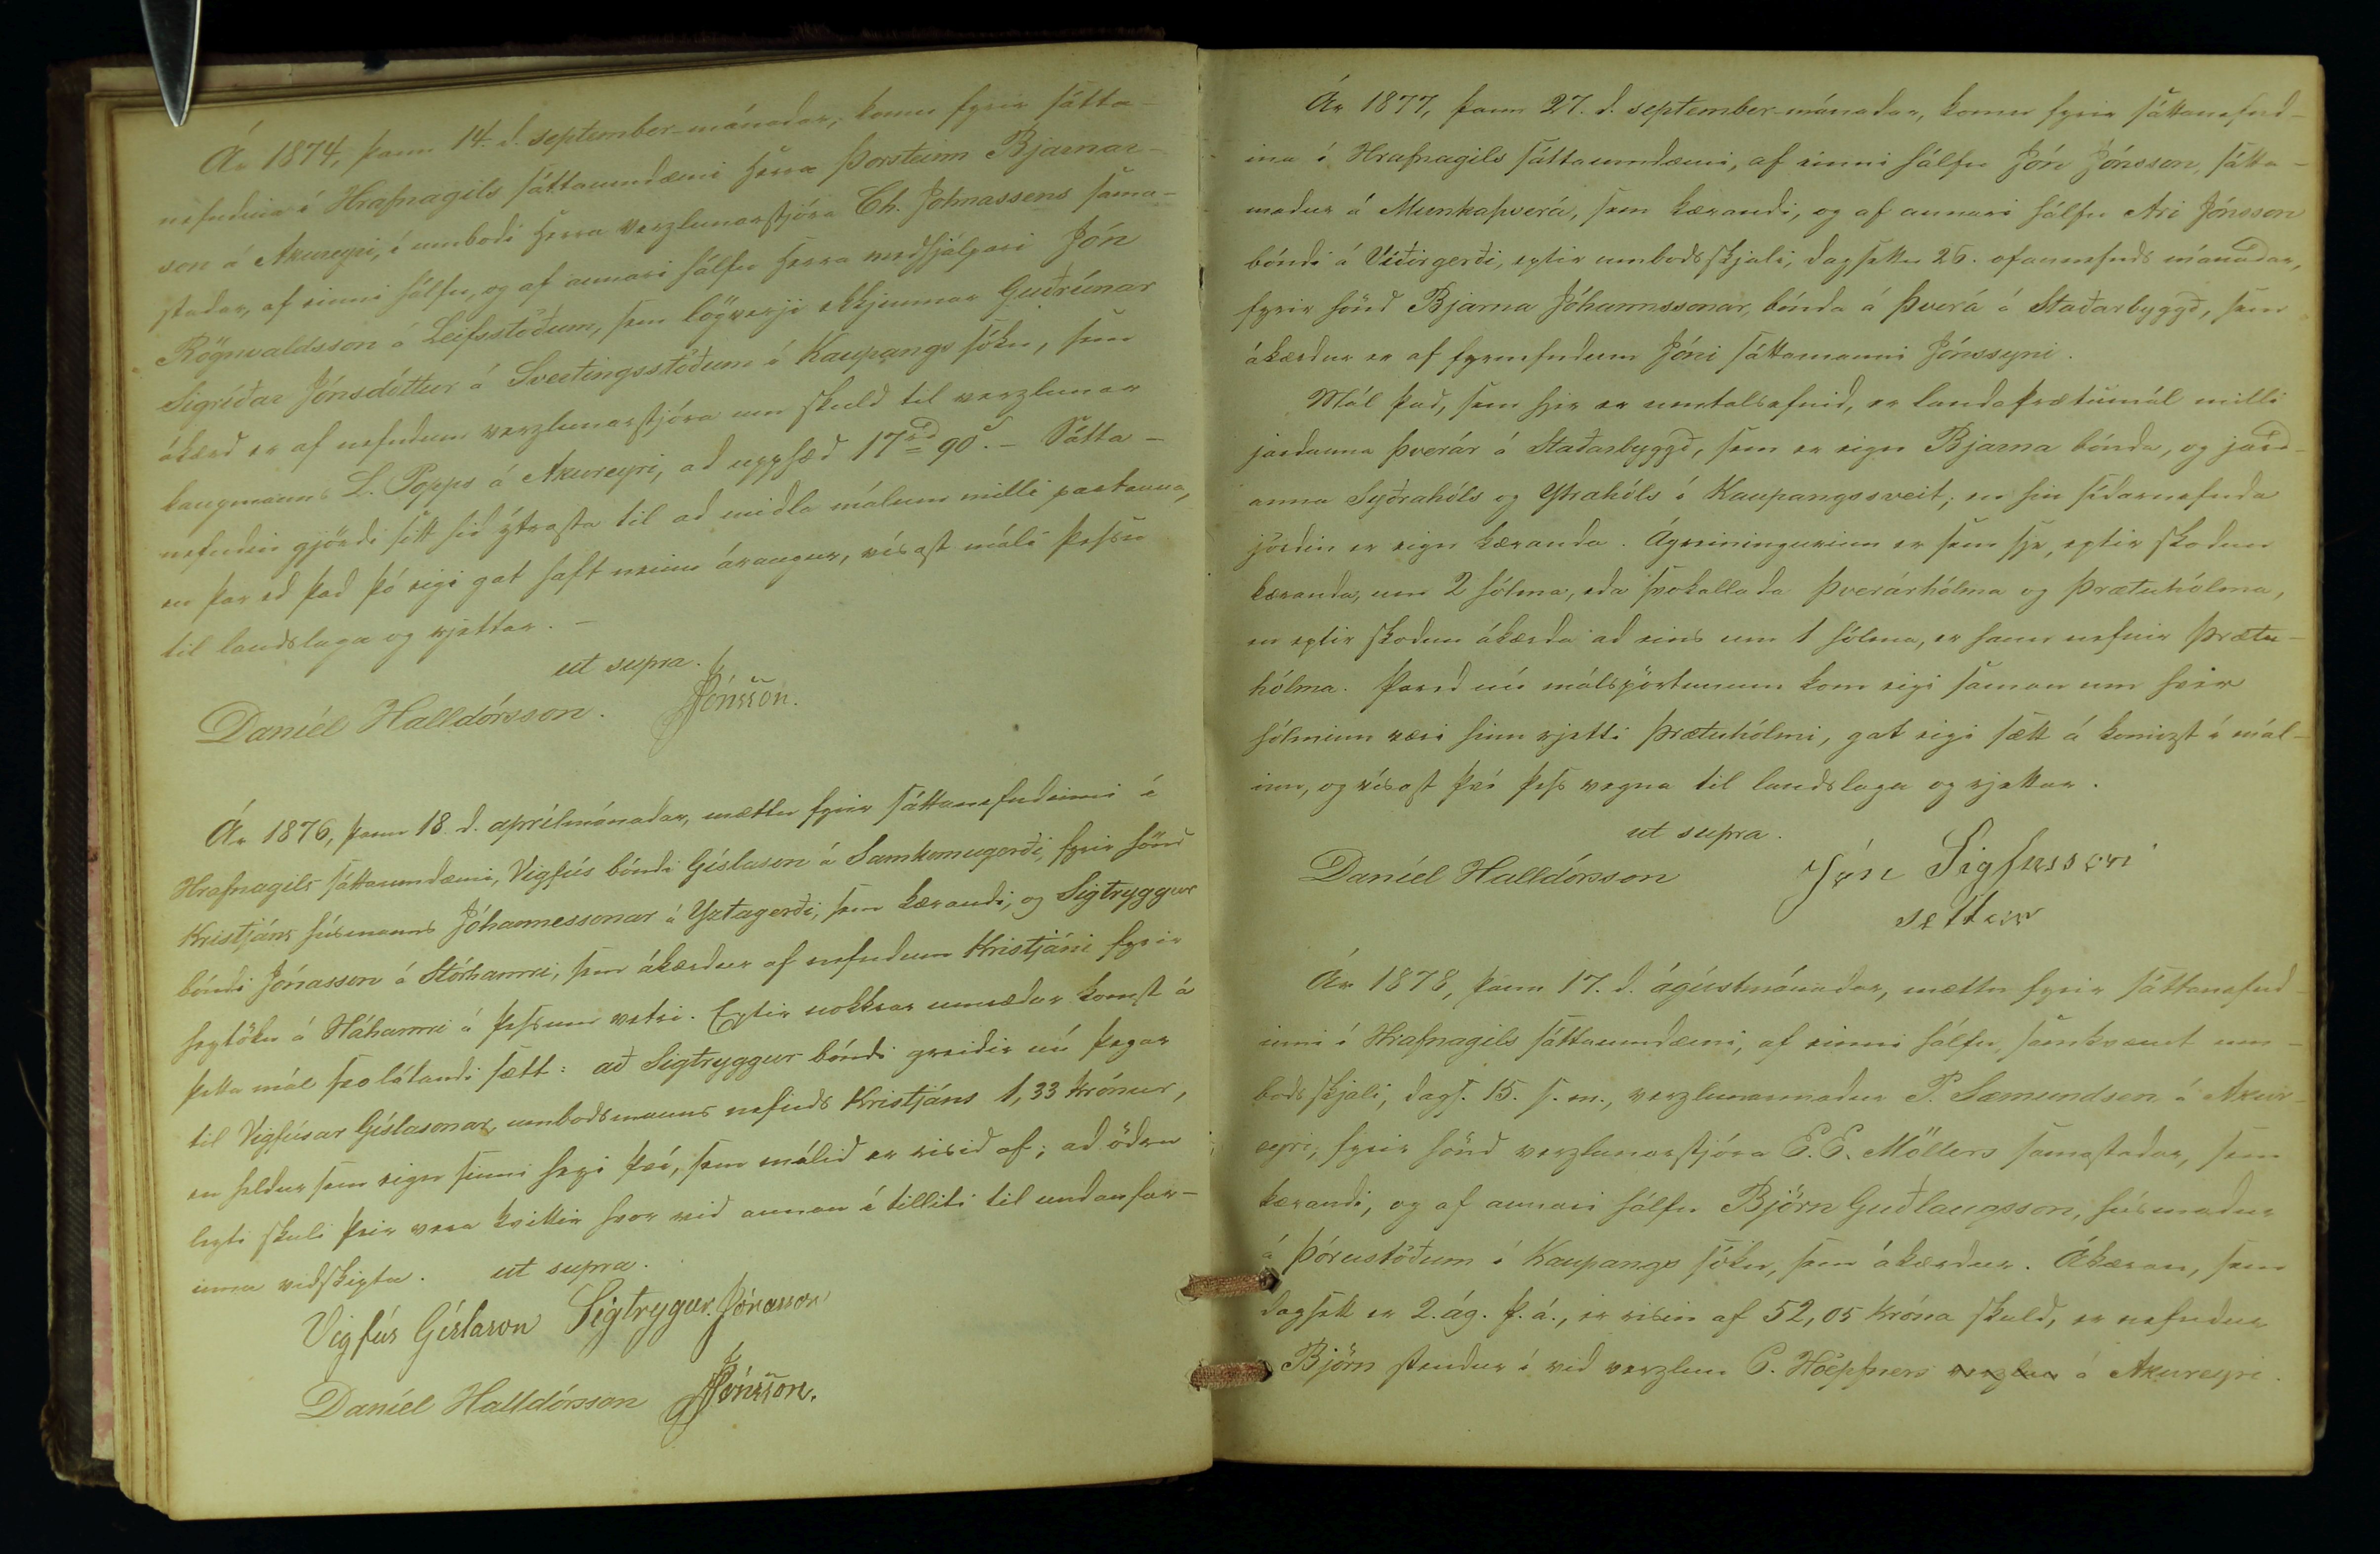 Ár 1874, þann 14. d. september-mánadar, komu fyrir sátta-
nefndina í Hrafnagils sáttaumdæmi Herra Þorsteinn Bjarnar-
son á Akureyri, í umbodi Herra verzlunarstjóra Ch. Johnassens sama-
stadar, af einni hálfu, og af annari hálfu Herra medhjálpari Jón
Rögnvaldsson á Leifsstöðum, sem lögverji ekkjunnar Guðrúnar
Sigríðar Jónsdóttur á Sveitingsstöðum í Kaupangs sókn, sem
ákærd er af nefndum verzlunarstjóra um skuld til verzlunar
kaupmanns L. Popps á Akureyri, ad upphæd 17rd 90s. - Sátta-
nefndin gjördi sitt hid ýtrasta til ad midla málum milli partanna,
en þar ed þad þó eigi gat haft neinn árangur, vísast máli þessu
til landslaga og rjettar. -
ut supra.
Daníel Halldórsson. JJónsson.
Ár 1876, þann 18. d. aprílmánadar, mættu fyrir sáttanefndinni í
Hrafnagils sáttaumdæmi, Vigfús bóndi Gíslason á Samkomugerði, fyrir hönd
Kristjáns húsmanns Jóhannessonar á Yztagerði, sem kærandi, og Sigtryggur
bóndi Jónasson á Stórhamri, sem ákærdur af nefndum Kristjáni fyrir
heytöku á Háhamri á þessum vetri. Eptir nokkrar umrædur komst á
þetta mál svolátandi sætt: að Sigtryggur bóndi greidir nú þegar
til Vigfúsar Gíslasonar, umbodsmanns nefnds Kristjáns 1,33 krónur,
en heldur sem eign sinni heyi því, sem málid er risid af; ad ödru
leyti skulu þeir vera kvittir hvor vid annan í tilliti til undanfar-
inna vidskipta. ut supra.
Vigfús Gíslason Sigtrygur. Jónasson
Daníel Halldórsson JJónsson.
Ár 1877, þann 27. d. september-mánadar, komu fyrir sáttanefnd-
ina í Hrafnagils sáttaumdæmi, af einni hálfu Jón Jónsson, sátta-
madur á Munkaþverá, sem kærandi, og af annari hálfu Ari Jónsson
bóndi á Víðirgerði, eptir umbodsskjali, dagsettu 26. ofannefnds mánadar,
fyrir hönd Bjarna Jóhannssonar, bónda á Þverá á Staðarbyggð, sem
ákærdur er af fyrnefndum Jóni sáttamanni Jónssyni.
Mál þad, sem hjer er umtalsefnid, er landaþrætumál milli
jardanna Þverár á Staðarbyggð, sem er eign Bjarna bónda, og jard-
anna Syðrahóls og Ytrahóls í Kaupangssveit; en hin sídarnefnda
jördin er eign kæranda. Ágreiningurinn er sem sje, eptir skodun
kæranda, um 2 hólma, eda svokallada Þverárhólma og Þrætuhólma,
en eptir skodun ákærda ad eins um 1 hólma, er hann nefnir Þrætu-
hólma. Þared nú málspörtunum kom eigi saman um hvor
hólminn væri hinn rjetti Þrætuhólmi, gat eigi sætt á komizt í mál-
inu, og vísast því þess vegna til landslaga og rjettar.
ut supra.
Daníel Halldórsson Jón Sigfússon
settur
Ár 1878, þann 17. d. ágústmánadar, mættu fyrir sáttanefnd-
inni í Hrafnagils sáttaumdæmi, af einni hálfu, samkvæmt um-
bodsskjali, dags. 15. s. m., verzlunarmadur P. Sæmundsen á Akur-
eyri, fyrir hönd verzlunarstjóra E. E. Möllers samastadar, sem
kærandi, og af annari hálfu Björn Guðlaugsson, húsmadur
á Þórustöðum í Kaupangs sókn, sem ákærdur. Ákæran, sem
dagsett er 2. ág. þ. á., er risin af 52,05 króna skuld, er nefndur
Björn stendur í vid verzlun C. Höepfners verzlun á Akureyri.